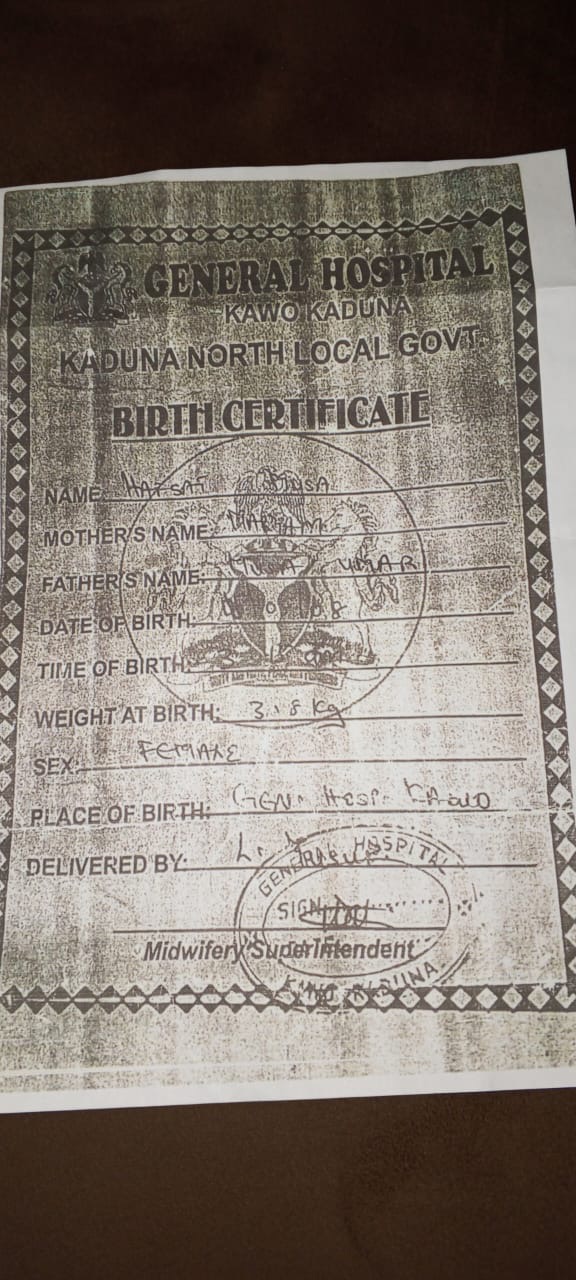 GENERAL HOSPITAL
KAWO KADUNA
KADUNA NORTH LOCAL GOVT.
BIRTH CERTIFICATE
NAME: HAFSAT MUSA
MOTHER'S NAME:
FATHER'S NAME: MUSA UMAR
DATE OF BIRTH:
TIME OF BIRTH:
WEIGHT AT BIRTH: 3.8 Kg
SEX: FEMALE
PLACE OF BIRTH: GEN. HOSP. KAWO
DELIVERED BY:
GENERAL HOSPITAL
SIGN
Midwifery Superintendent
KAWO KADUNA